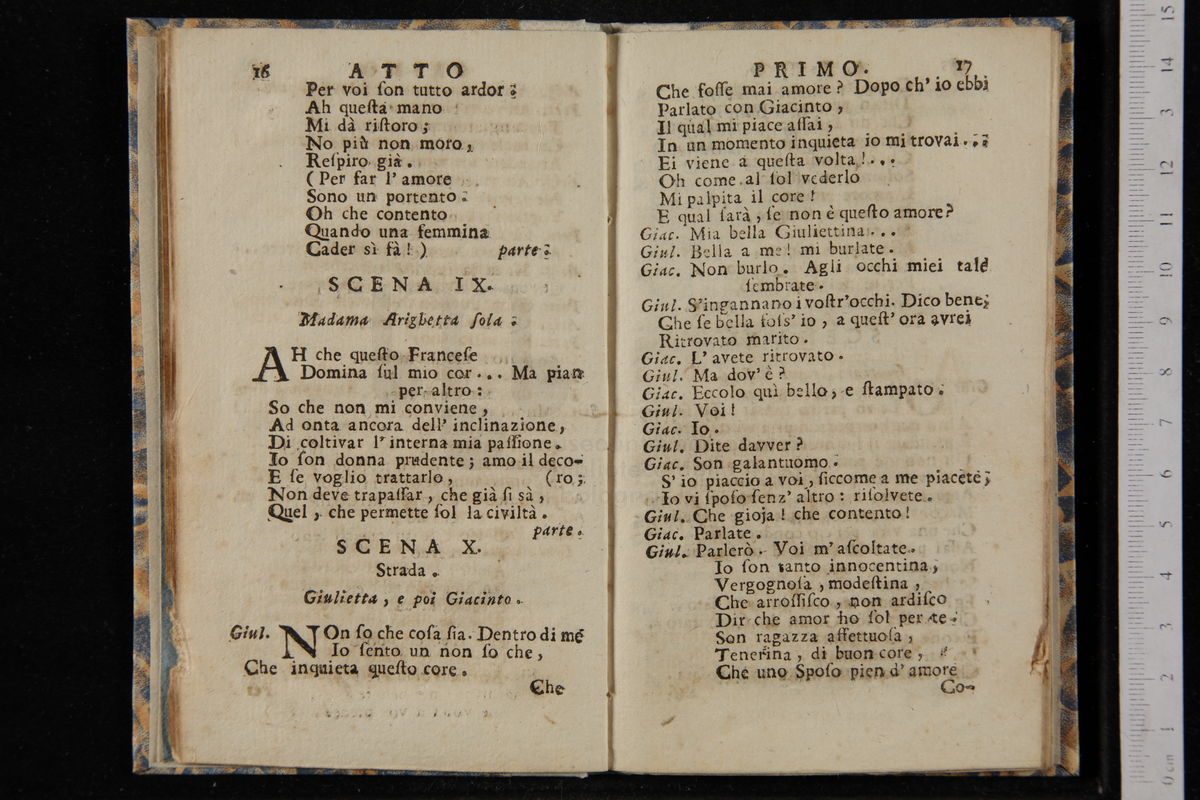 16 ATTO
Per voi ſon tutto ardor:
Ah queſta mano
Mi dà riſtoro;
No più non moro,
Reſpiro già.
(Per far l'amore
Sono un portento:
Oh che contento
Quando una femmina
Cader sì fà!) parte.
SCENA IX.
Madama Arighetta ſola.
AH che queſto Franceſe
Domina ſul mio cor... Ma pian
per altro:
So che non mi conviene,
Ad onta ancora dell' inclinazione,
Di coltivar l'interna mia paſſione.
Io ſon donna prudente; amo il deco-
E ſe voglio trattarlo, (ro;
Non deve trapaſſar, che già ſi sà,
Quel, che permette ſol la civiltà.
parte.
SCENA X.
Strada.
Giulietta, e poi Giacinto.
Giul. NOn ſo che coſa ſia. Dentro di me
Io ſento un non ſo che,
Che inquieta queſto core.
Che
PRIMO. 17
Che foſſe mai amore? Dopo ch' io ebbi
Parlato con Giacinto,
Il qual mi piace aſſai,
In un momento inquieta io mi trovai...
Ei viene a queſta volta!...
Oh come al ſol vederlo
Mi palpita il core!
E qual ſarà, ſe non è queſto amore?
Giac. Mia bella Giuliettina...
Giul. Bella a me! mi burlate.
Giac. Non burlo. Agli occhi miei tale
ſembrate.
Giul. S'ingannano i voſtr'occhi. Dico bene,
Che ſe bella foſs' io, a queſt' ora avrei
Ritrovato marito.
Giac. L' avete ritrovato.
Giul. Ma dov' è?
Giac. Eccolo quì bello, e ſtampato.
Giul. Voi!
Giac. Io.
Giul. Dite davver?
Giac. Son galantuomo.
S' io piaccio a voi, ſiccome a me piacete,
Io vi ſpoſo ſenz' altro: riſolvete.
Giul. Che gioja! che contento!
Giac. Parlate.
Giul. Parlerò. Voi m' aſcoltate.
Io ſon tanto innocentina,
Vergognoſa, modeſtina,
Che arroſſiſco, non ardiſco
Dir che amor ho ſol per te.
Son ragazza affettuoſa,
Tenerina, di buon core,
Che uno Spoſo pien d' amore
Co-
15
14
3
12
11
10
9
8
7
6
5
4
3
2
1
0 cm